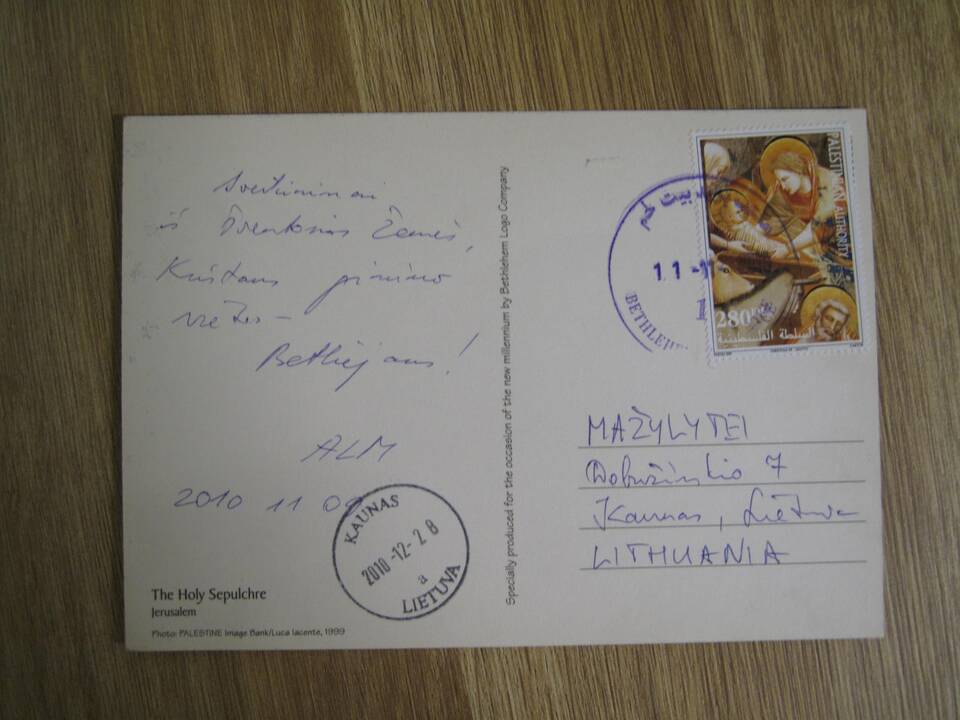 Sveikinimai
iš Šventosios Žemės,
Kristaus gimimo
vietos -
Betliejaus!
ALM
2010 11 08
KAUNAS
2010-12-28
a
LIETUVA
The Holy Sepulchre
Jerusalem
Photo: PALESTINE Image Bank/Luca Iacente, 1999
Specially produced for the occasion of the new millennium by Bethlehem Logo Company
بيت لحم
11-11
BETHLEHEM
PALESTINIAN AUTHORITY
280
السلطة الفلسطينية
MAŽYLYTEI
Dobužinskio 7
Kaunas, Lietuva
LITHUANIA